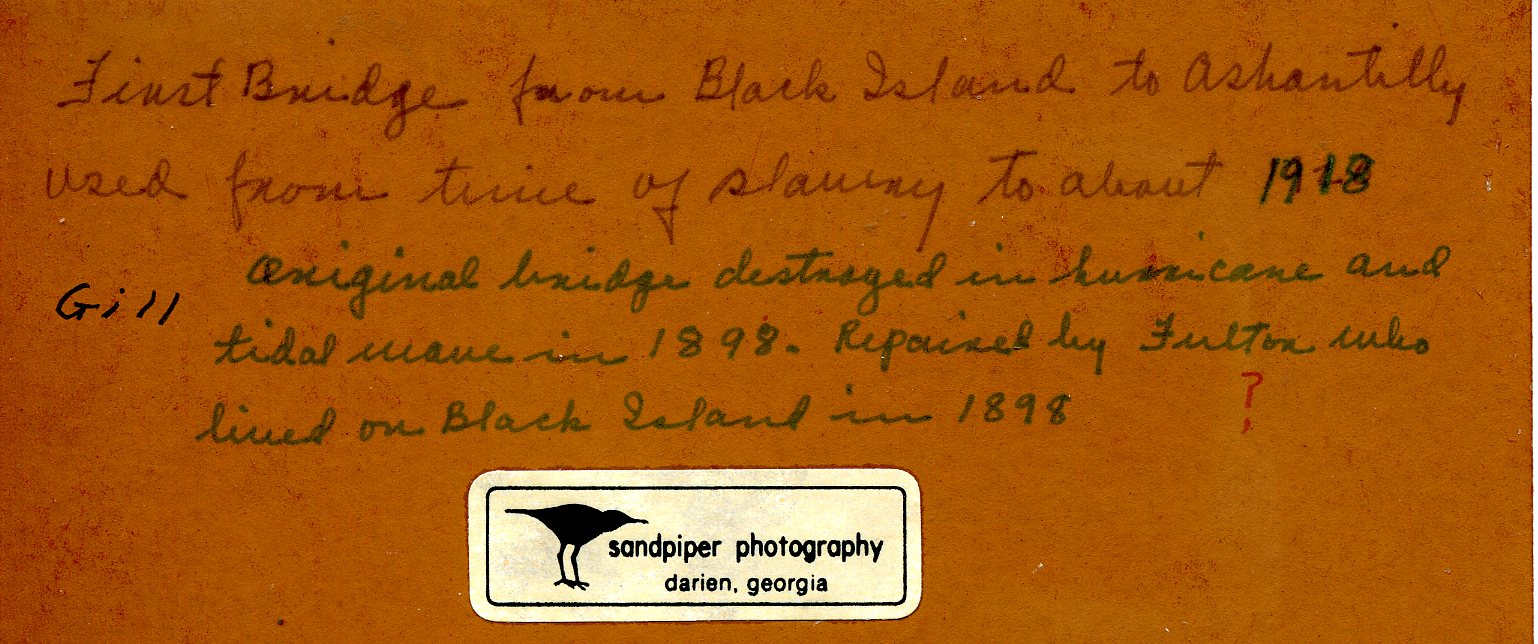 First Bridge from Black Island to Ashantilly
used from time of slavery to about 1918
Original bridge destroyed in hurricane and
Gill
tidal wave in 1898. Repaired by Fulton who
?
lived on Black Island in 1898
sandpiper photography
darien, georgia